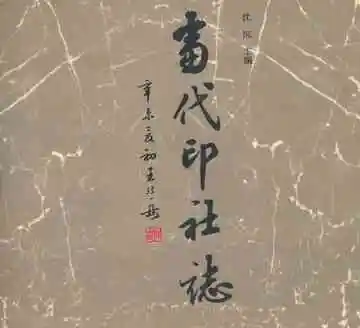 沈沉 主編
當代印社誌
辛未夏初